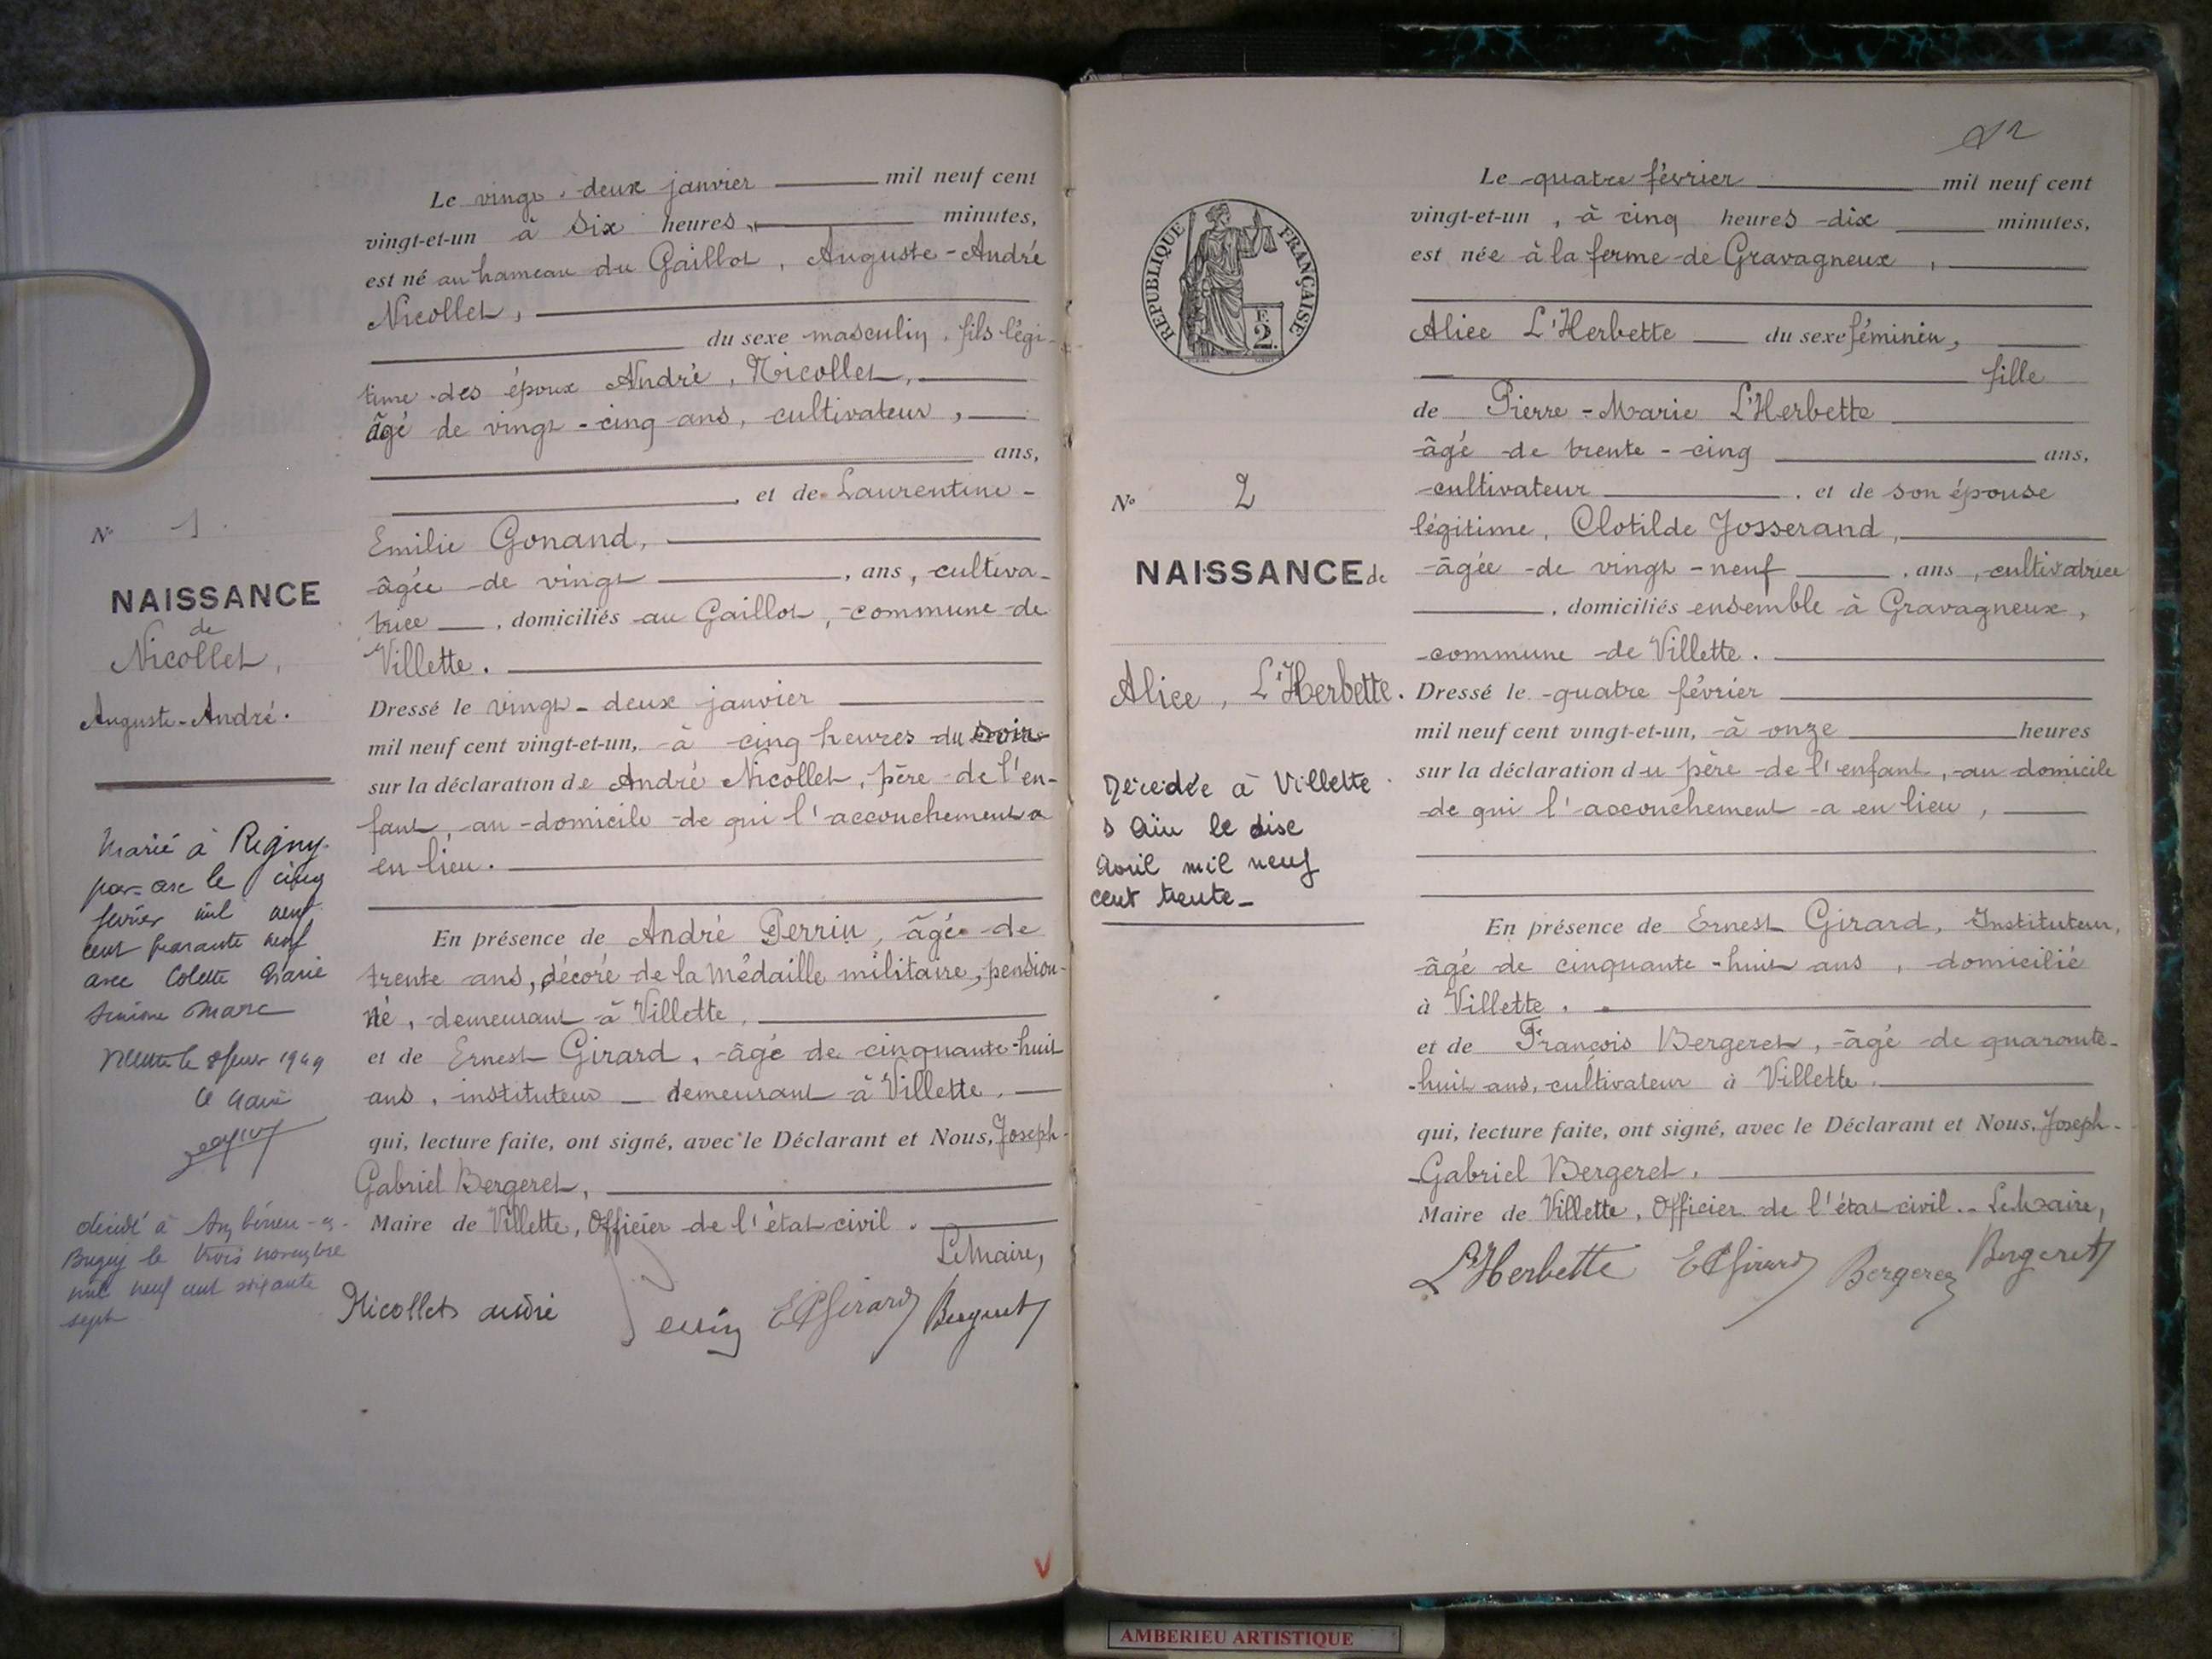 Nº 1.
NAISSANCE
de
Nicollet,
Auguste-André.
Marié à Rigny-
le cinq
février mil neuf
cent quarante neuf
avec Colette Marie
Simone Marc
Villette le 8 février 1949
Le Maire
décédé à Ambérieu-en-
Bugey le trois novembre
mil neuf cent soixante
sept
Le vingt-deux janvier mil neuf cent
vingt-et-un à six heures, minutes,
est né au hameau du Gaillot, Auguste-André
Nicollet,
du sexe masculin, fils légi-
time des époux André, Nicollet,
âgé de vingt-cinq ans, cultivateur,
ans,
, et de Laurentine-
Emilie Gonand,
âgée de vingt , ans, cultiva-
trice , domiciliés au Gaillot, commune de
Villette.
Dressé le vingt-deux janvier
mil neuf cent vingt-et-un, à cinq heures du soir
sur la déclaration de André Nicollet, père de l'en-
fant, au domicile de qui l'accouchement a
eu lieu.
En présence de André Perrin, âgé de
trente ans, décoré de la Médaille militaire, pension-
né, demeurant à Villette,
et de Ernest Girard, âgé de cinquante-huit
ans, instituteur demeurant à Villette.
qui, lecture faite, ont signé, avec le Déclarant et Nous, Joseph-
Gabriel Bergeret,
Maire de Villette, Officier de l'état civil.
Le Maire,
Nicollet andré Perrin E Girard Bergeret
RÉPUBLIQUE FRANÇAISE
F.
2.
Nº 2
NAISSANCE de
Alice, L'Herbette.
Décédée à Villette
s Ain le dix
Avril mil neuf
cent trente
Le quatre février mil neuf cent
vingt-et-un, à cinq heures dix minutes,
est née à la ferme de Gravagneux,
Alice L'Herbette du sexe féminin,
fille
de Pierre-Marie L'Herbette
âgé de trente-cinq ans,
cultivateur , et de son épouse
légitime, Clotilde Josserand,
âgée de vingt-neuf , ans, cultivatrice
, domiciliés ensemble à Gravagneux,
commune de Villette.
Dressé le quatre février
mil neuf cent vingt-et-un, à onze heures
sur la déclaration du père de l'enfant, au domicile
de qui l'accouchement a eu lieu,
En présence de Ernest Girard, Instituteur,
âgé de cinquante-huit ans, domicilié
à Villette.
et de François Bergeret, âgé de quarante-
huit ans, cultivateur à Villette.
qui, lecture faite, ont signé, avec le Déclarant et Nous, Joseph-
Gabriel Bergeret,
Maire de Villette, Officier de l'état civil. Le Maire,
L'Herbette E Girard Bergeret Bergeret
V
AMBERIEU ARTISTIQUE